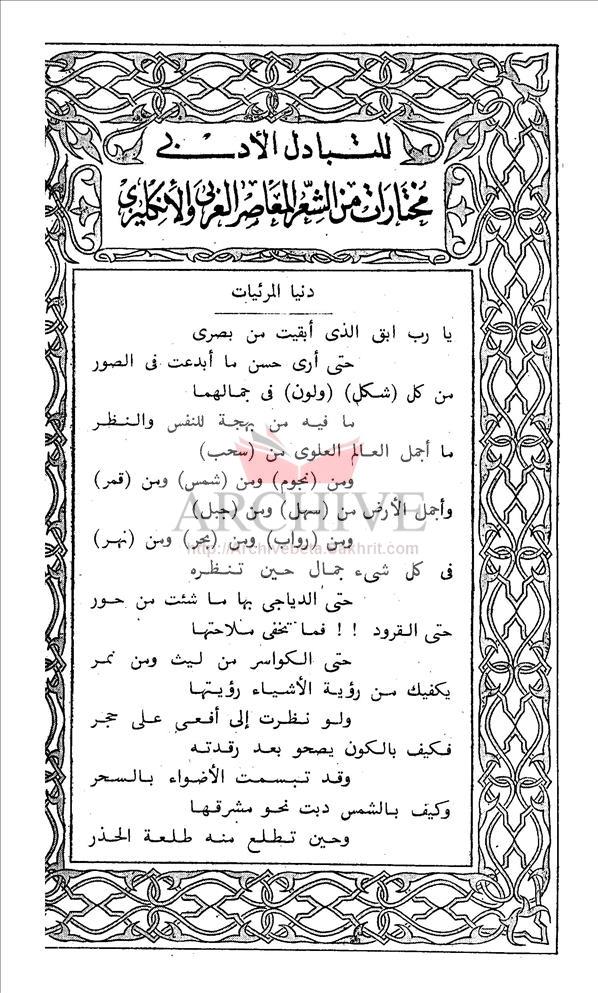 للتبادل الأدبى
مختارات من الشعر المعاصر العربى والأنكليزى
دنيا المرئيات
يا رب ابق الذى أبقيت من بصرى
حتى أرى حسن ما أبدعت فى الصور
من كل (شكل) ولون) فى جمالهما
ما فيه من بهجة للنفس والنظر
ما أجمل العالم العلوى من (سحب)
ومن (نجوم) ومن (شمس) ومن (قمر)
وأجمل الأرض من (سهل) ومن (جبل)
ARCHIVE
ومن (رواب) ومن (بحر) ومن (نهر)
http://Archivebeta.Sakhrit.com
فى كل شىء جمال حين تنظره
حتى الدياجى بها ما شئت من حور
حتى القرود !! فما تخفى ملاحتها
حتى الكواسر من ليث ومن نمر
يكفيك من رؤية الأشياء رؤيتها
ولو نظرت إلى أفعى على حجر
فكيف بالكون يصحو بعد رقدته
وقد تبسمت الأضواء بالسحر
وكيف بالشمس دبت نحو مشرقها
وحين تطلع منه طلعة الحذر